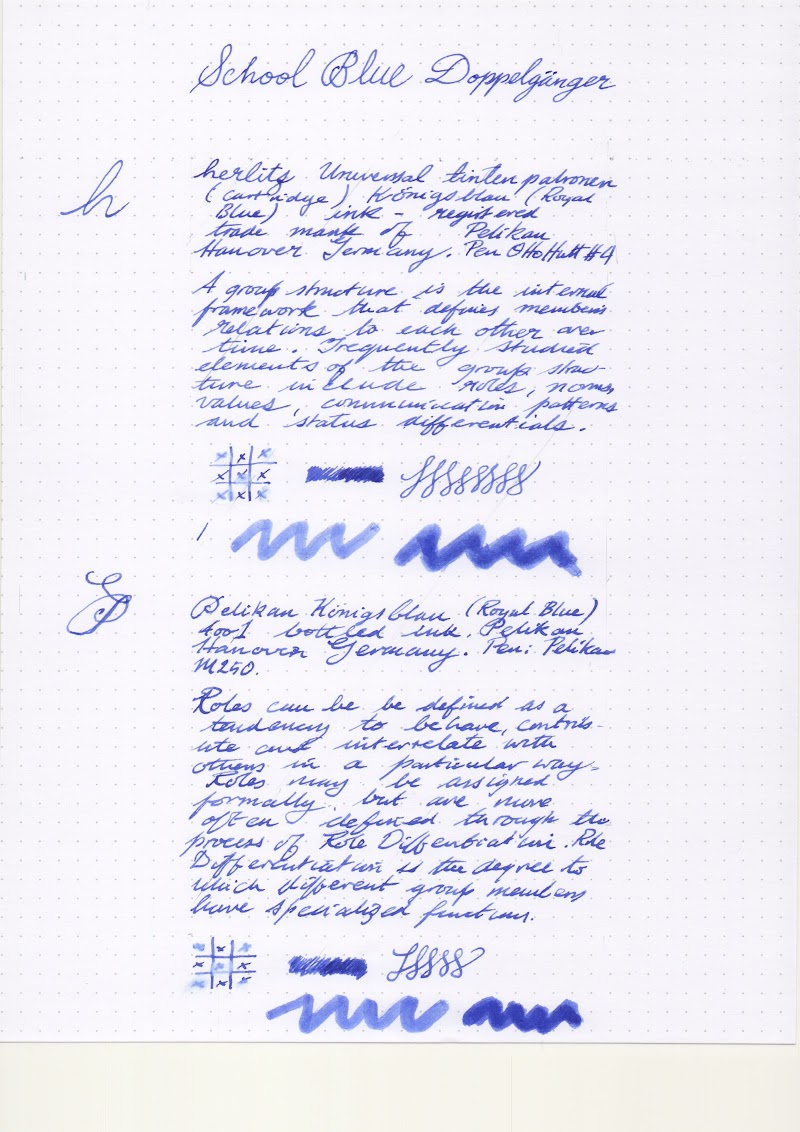 School Blue Doppelgänger
h
herlitz Universal tintenpatronen
(cartridge) Königsblau (Royal
Blue) ink - registered
trade mark of Pelikan
Hanover Germany. Pen Otto Hutt #4
A group structure is the internal
framework that defines members
relations to each other over
time. Frequently studied
elements of the group struc-
ture include roles, norms,
values, communication patterns
and status differentials.
P
Pelikan Königsblau (Royal Blue)
4001 bottled ink. Pelikan
Hanover Germany. Pen: Pelikan
M250.
Roles can be be defined as a
tendency to behave, contrib-
ute and interrelate with
others in a particular way.
Roles may be assigned
formally, but are more
often defined through the
process of Role Differentiation. Role
Differentiation is the degree to
which different group members
have specialized functions.